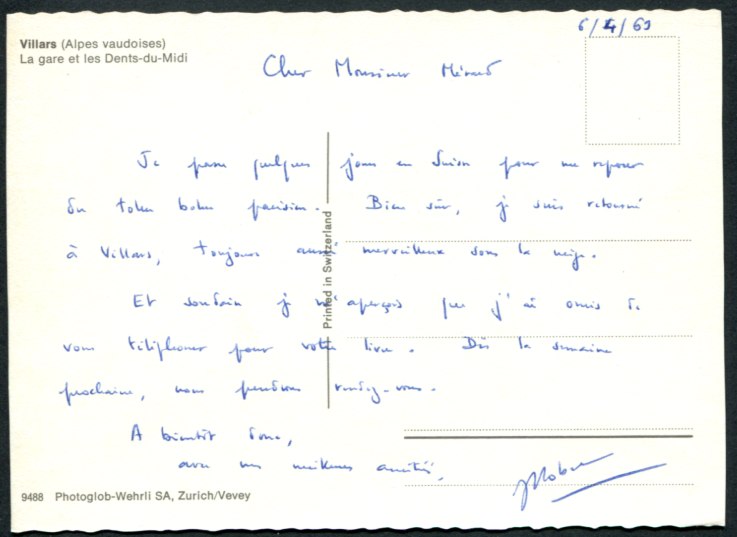 6/4/69
Villars (Alpes vaudoises)
La gare et les Dents-du-Midi
Cher Monsieur Méraud
Je passe quelques jours en Suisse pour me reposer
du tohu bohu parisien. Bien sûr, je suis retourné
à Villars, toujours aussi merveilleux sous la neige.
Et soudain je m'aperçois que j'ai omis de
vous téléphoner pour votre livre. Dès la semaine
prochaine, nous prendrons rendez-vous.
A bientôt donc,
avec mes meilleures amitiés,
Printed in Switzerland
9488 Photoglob-Wehrli SA, Zurich/Vevey